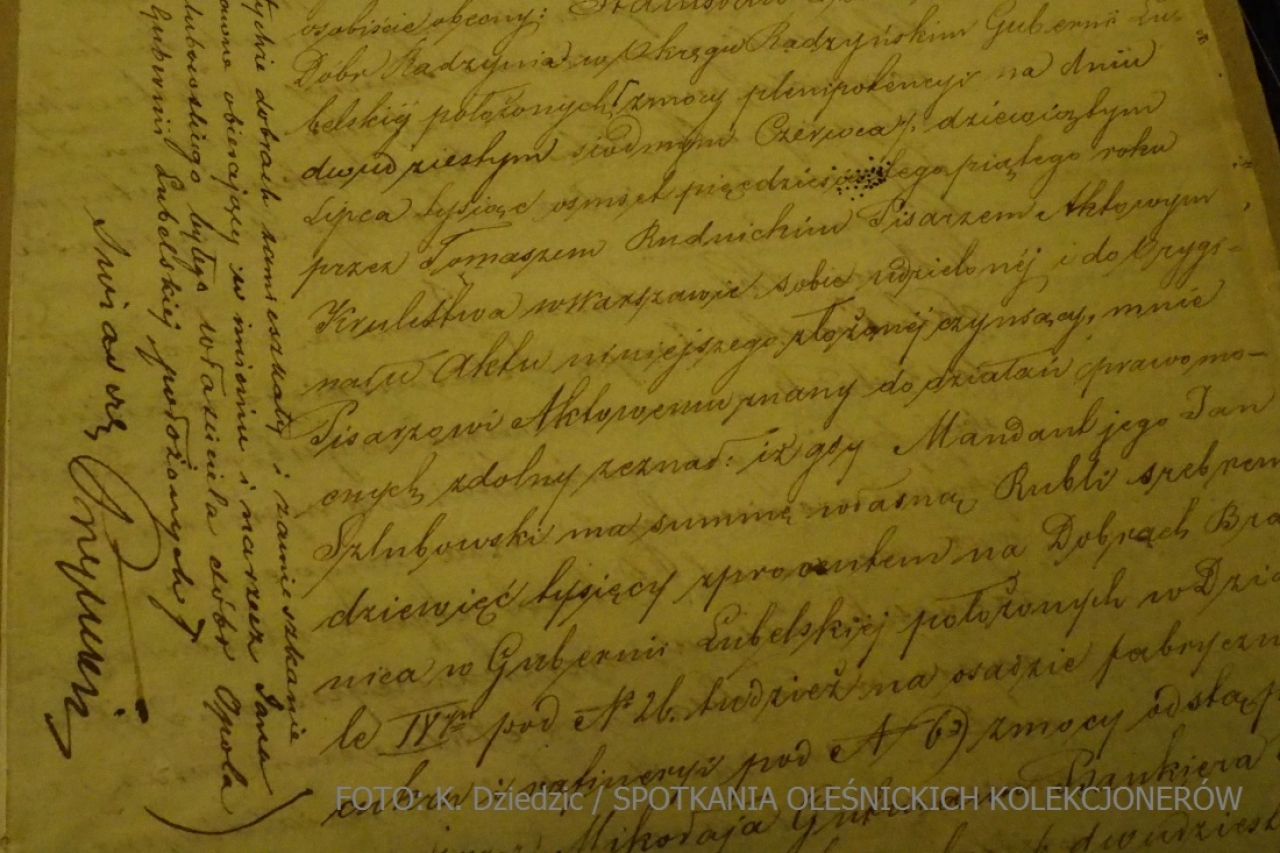 osobiście obecny: Stanisław
Dóbr Radzynia w Okręgu Radzyńskim Gubernii Lu-
belskiéj położonych [zmocy plenipotencyi na dniu
dwudziestym siódmym Czerwca/. dziewiątym
Lipca tysiąc ośmset pięćdziesiątego piątego roku
przez Tomaszem Rudnickim Pisarzem Aktowym
Królestwa w Warszawie sobie udzielonéj i do Orygi-
nału Aktu niniejszego złożonéj czyniący, mnie
Pisarzowi Aktowemu znany do działań prawomo-
cnych zdolny zeznał: iż gdy Mandant jego Jan
Szlubowski ma summę własną Rubli srebrem
dziewięć tysięcy zprocentem na Dobrach Bro
nica w Gubernii Lubelskiéj położonych w Dzia
le IVym pod No 26. tudzież na osadzie fabryczn
cukru i rafineryi pod No 63) zmocy odstąp
Mikołaja Bankiera
dwudziest
tychże dobrach zamieszkały i zamieszkanie
prawne obierający w imieniu i narzecz Jana
Szlubowskiego byłego właściciela dóbr Opola
Gubernii Lubelskiéj położonych]
FOTO: K. Dziedzic / SPOTKANIA OLEŚNICKICH KOLEKCJONERÓW